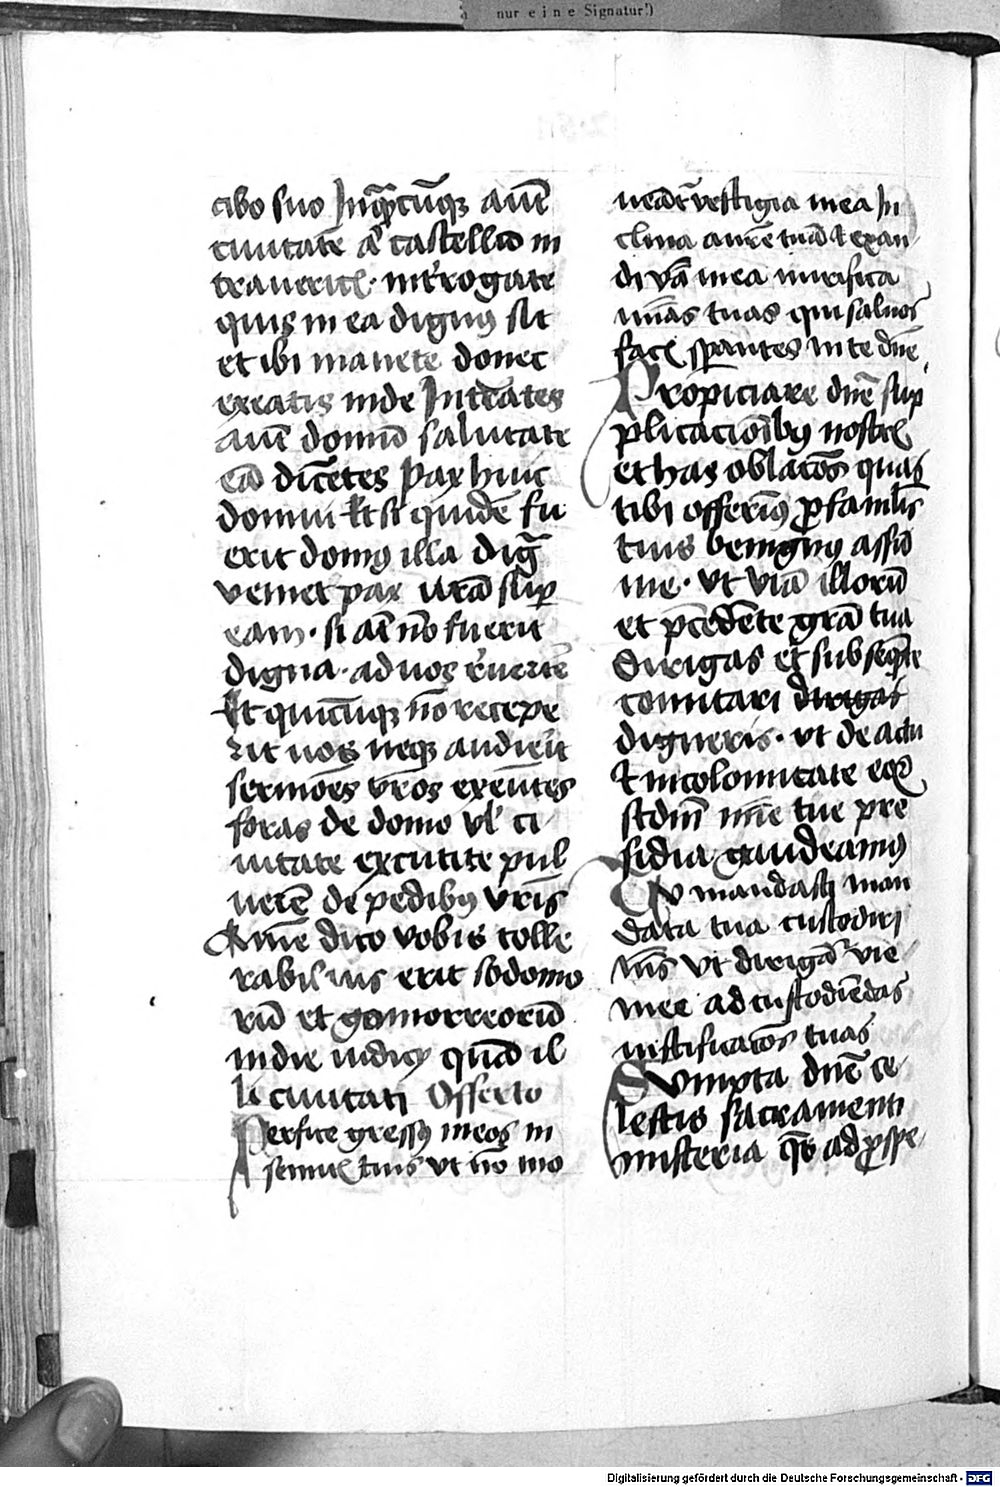 nur eine Signatur!)
cibo suo Inquācūq̄ autē
ciuitatē aut castellū in
traueritis. int'rogate
quis in ea dignus sit
et ibi manete donec
exeatis inde Intrātes
autē domū salutate
eā dicētes pax huic
domui Et si quidē fu
erit domus illa diḡ
veniet pax vrā sup
eam. si at nō fuerit
digna. ad uos reuertet
Et quicūq̄ nō recepe
rit uos neq̄ audierit
sermōes vros exeūtes
foras de domo vl' ci
uitate excutite pul
uerē de pedibus vris
Amē dico vobis tolle
rabilius erit sodomo
rū et gomorreorū
in die iudicij quā il
li ciuitati Offerto
Perfice gressus meos in
semitis tuis vt nō mo
ueātr vestigia mea In
clina aurē tuā & exau
di vba mea mirifica
mias tuas qui saluos
facis spantes in te dne
Propiciare dne sup
plicacioībus nostris
et has oblacōes quas
tibi offerims p famlis
tuis benignus assū
me. vt viā illorū
et pcedēte grā tua
dirigas et subseqnte
comitari dirigas
digneris. vt de actu
& incolomitate eoꝝ
scdm mie tue pre
sidia gaudeamus
Tu mandasti man
data tua custodiri
nis vt dirigātr vie
mee ad custodiēdas
iustificacōes tuas
Sumpta dne ce
lestis sacramenti
misteria qs ad pspe
Digitalisierung gefördert durch die Deutsche Forschungsgemeinschaft - DFG